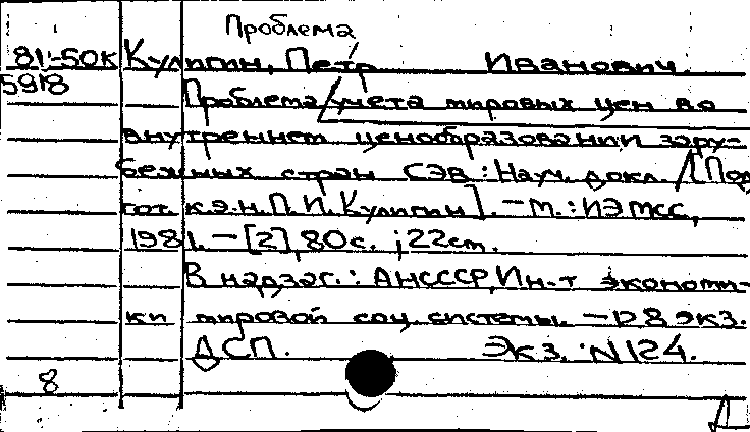 Проблема
81-50к Кулигин, Петр Иванович
5918
Проблема/учета мировых цен во
внутреннем ценообразовании зару-
бежных стран СЭВ : Науч. докл. /[Под
гот. к.э.н. П. И. Кулигин]. - М. : ИЭМСС,
1981. - [2], 80 с. ; 22 см.
В надзаг.: АН СССР, Ин-т экономи-
ки мировой соц. системы. -
экз.
ДСП. Экз. N 124.
8
Д